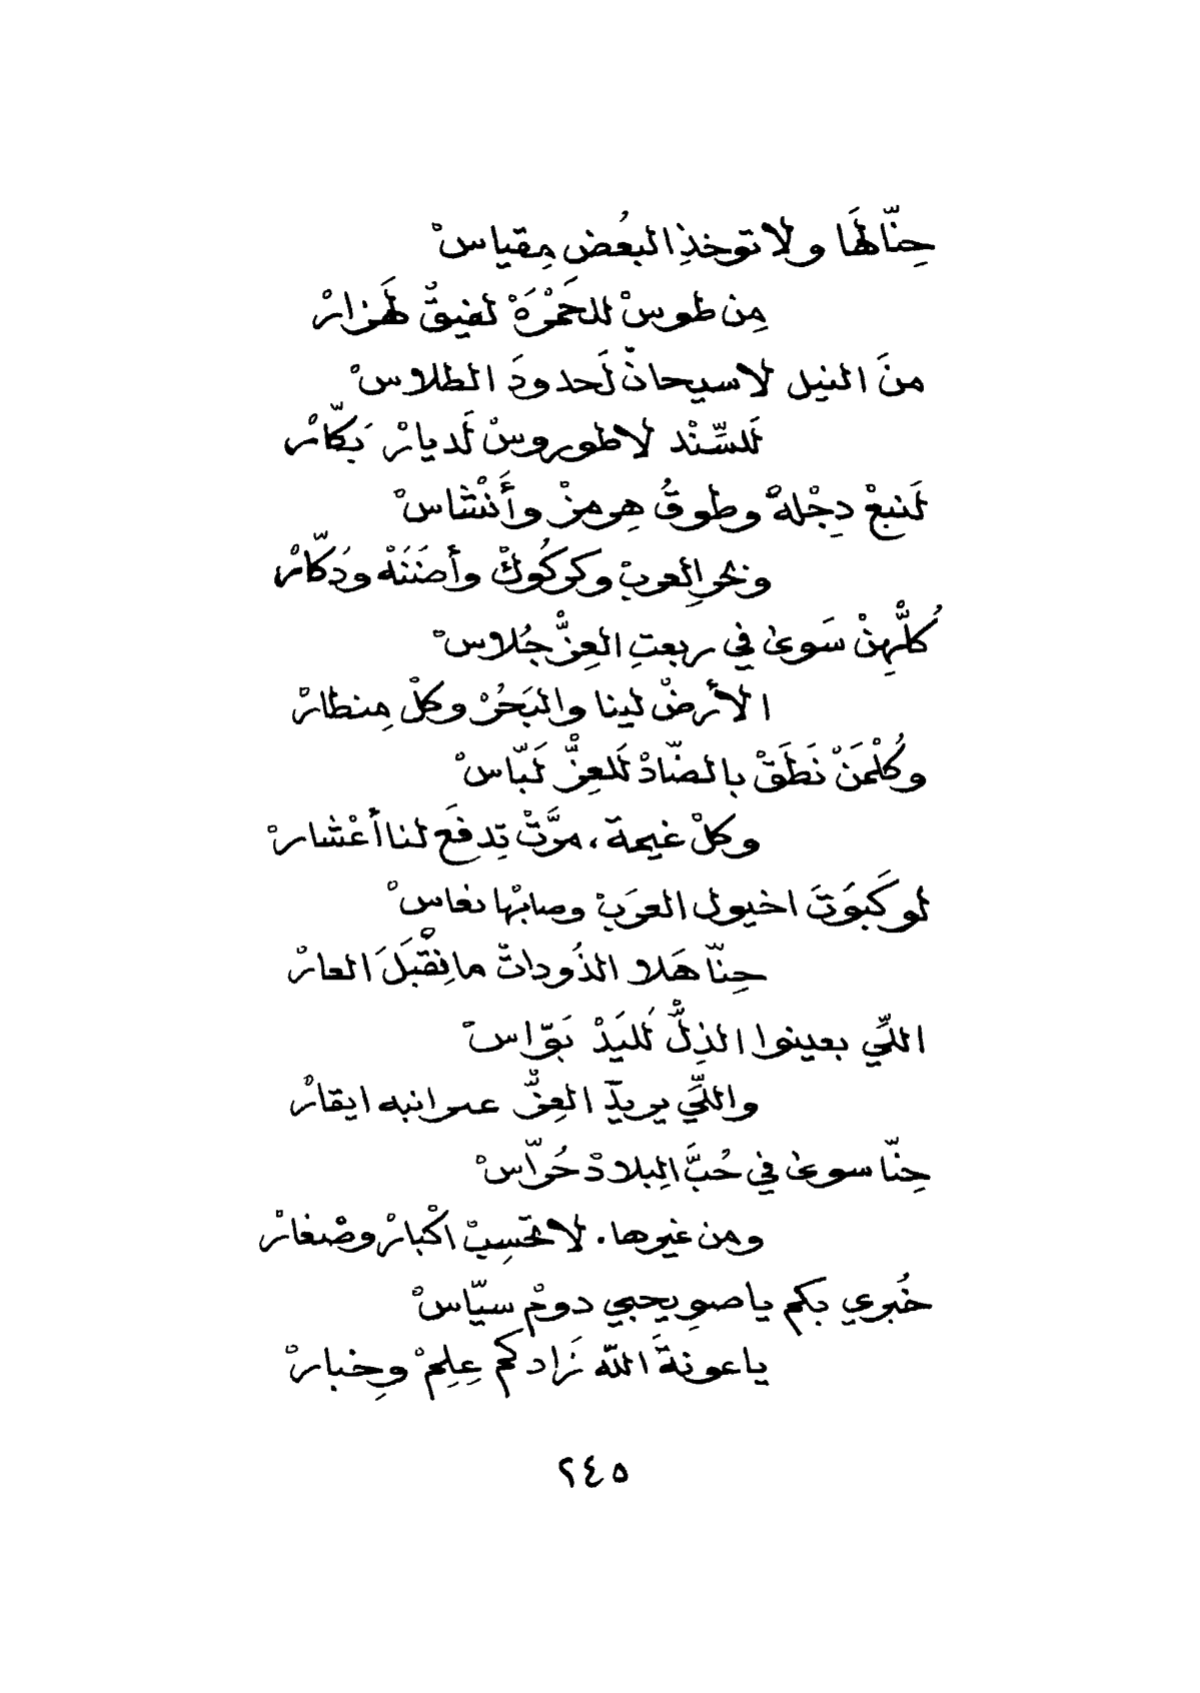 حِنّا لهَا ولا توخذِ البعُض مِقياسْ
مِن طوسْ للحَمْرَهْ لفيقْ لهَزارْ
منَ النيل لاسيحانْ لَحدودَ الطلاسْ
للسِّنْد لاطوروسْ لَديارْ بَكّارْ
لَنبعْ دِجْلهْ وطوقُ هِرمزْ وأَنْشاسْ
وبحرِ العربْ وكركُوكْ وأضَنَهْ ودَكّارْ
كُلّْهِنْ سَوىٰ في ربعتِ العِزّْ جُلاسْ
الأرضْ لينا والبَحُرْ وكلْ مِنطارْ
وكُلْمَنْ نَطَقْ بالضّادْ لَلعِزّْ لَبّاسْ
وكلْ غيمة، مرَّتْ تِدفَع لنا أعْشارْ
لو كَبوَتَ اخيول العرَبْ وصابْها نعاسْ
حِنّا هَلا الذُوداتْ ما نِقْبَلَ العارْ
اللّي بعينوا الذِلّْ لليَدْ بَوّاسْ
واللّي يريدَ العِزّْ عمرانبه ايقارْ
حِنّا سوىٰ في حُبَّ البِلادْ حُرّاسْ
ومن غيرها. لا تحَسِبْ اكْبارْ وصْغارْ
خُبري بكم يا صوِيحبي دومْ سيّاسْ
يا عونةَ اللّه زَادكم عِلِمْ وخِبارْ
٢٤٥